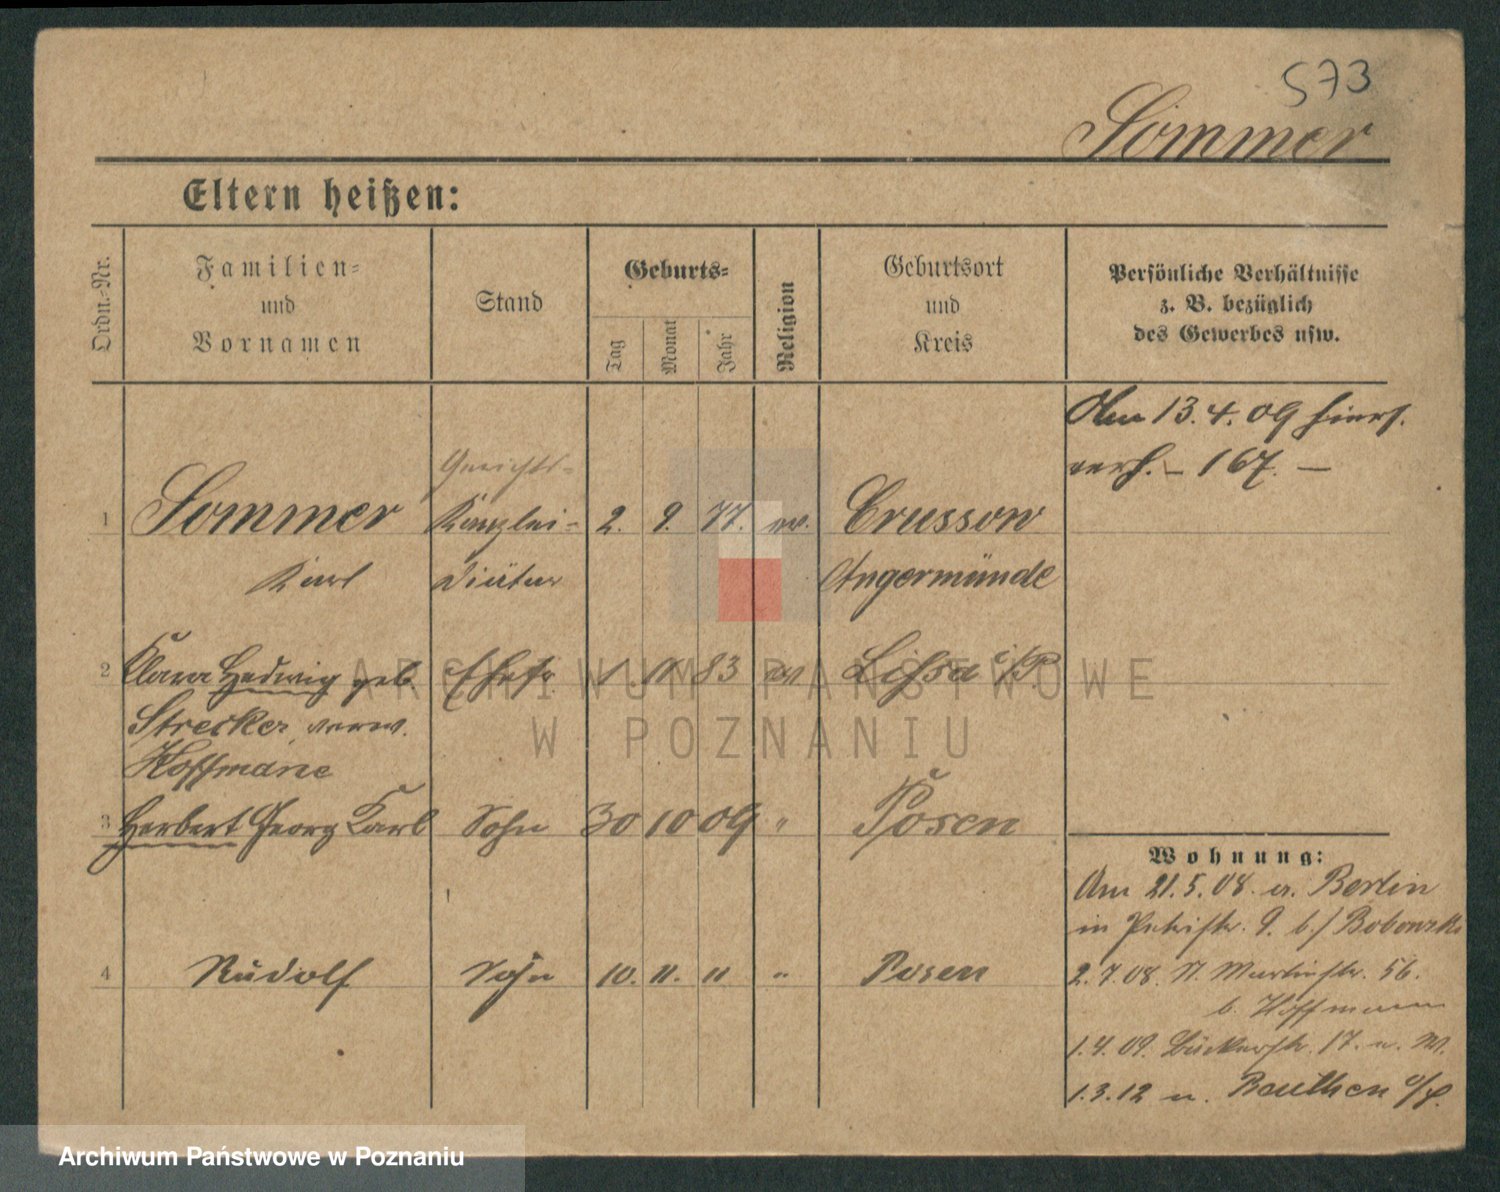 573
Sommer
Eltern heißen:
Ordn.-Nr.
Familien-
und
Vornamen
Stand
Geburts-
Tag
Monat
Jahr
Religion
Geburtsort
und
Kreis
Persönliche Verhältnisse
z. B. bezüglich
des Gewerbes usw.
Am 13.4.09 hiers.
verh. – 167. –
Gerichts-
1 Sommer Kanzlei- 2. 9. 77. ev. Crussow
Karl Diätar Angermünde
2 Clara Hedwig geb. Ehefr. 1. 11. 83 ev Lissa i/P.
Strecker, verw.
Hoffmann
3 Herbert Georg Karl Sohn 30 10 09 " Posen
4 Rudolf Sohn 10. 11. 11 " Posen
Wohnung:
Am 21.5.08. a. Berlin
in Petristr. 9. b./
2.7.08. St. Martinstr. 56.
b. Hoffmann
1.4.09. Bäckerstr. 17. u. W.
1.3.12 n. Beuthen o/S.
ARCHIWUM PAŃSTWOWE
W POZNANIU
Archiwum Państwowe w Poznaniu